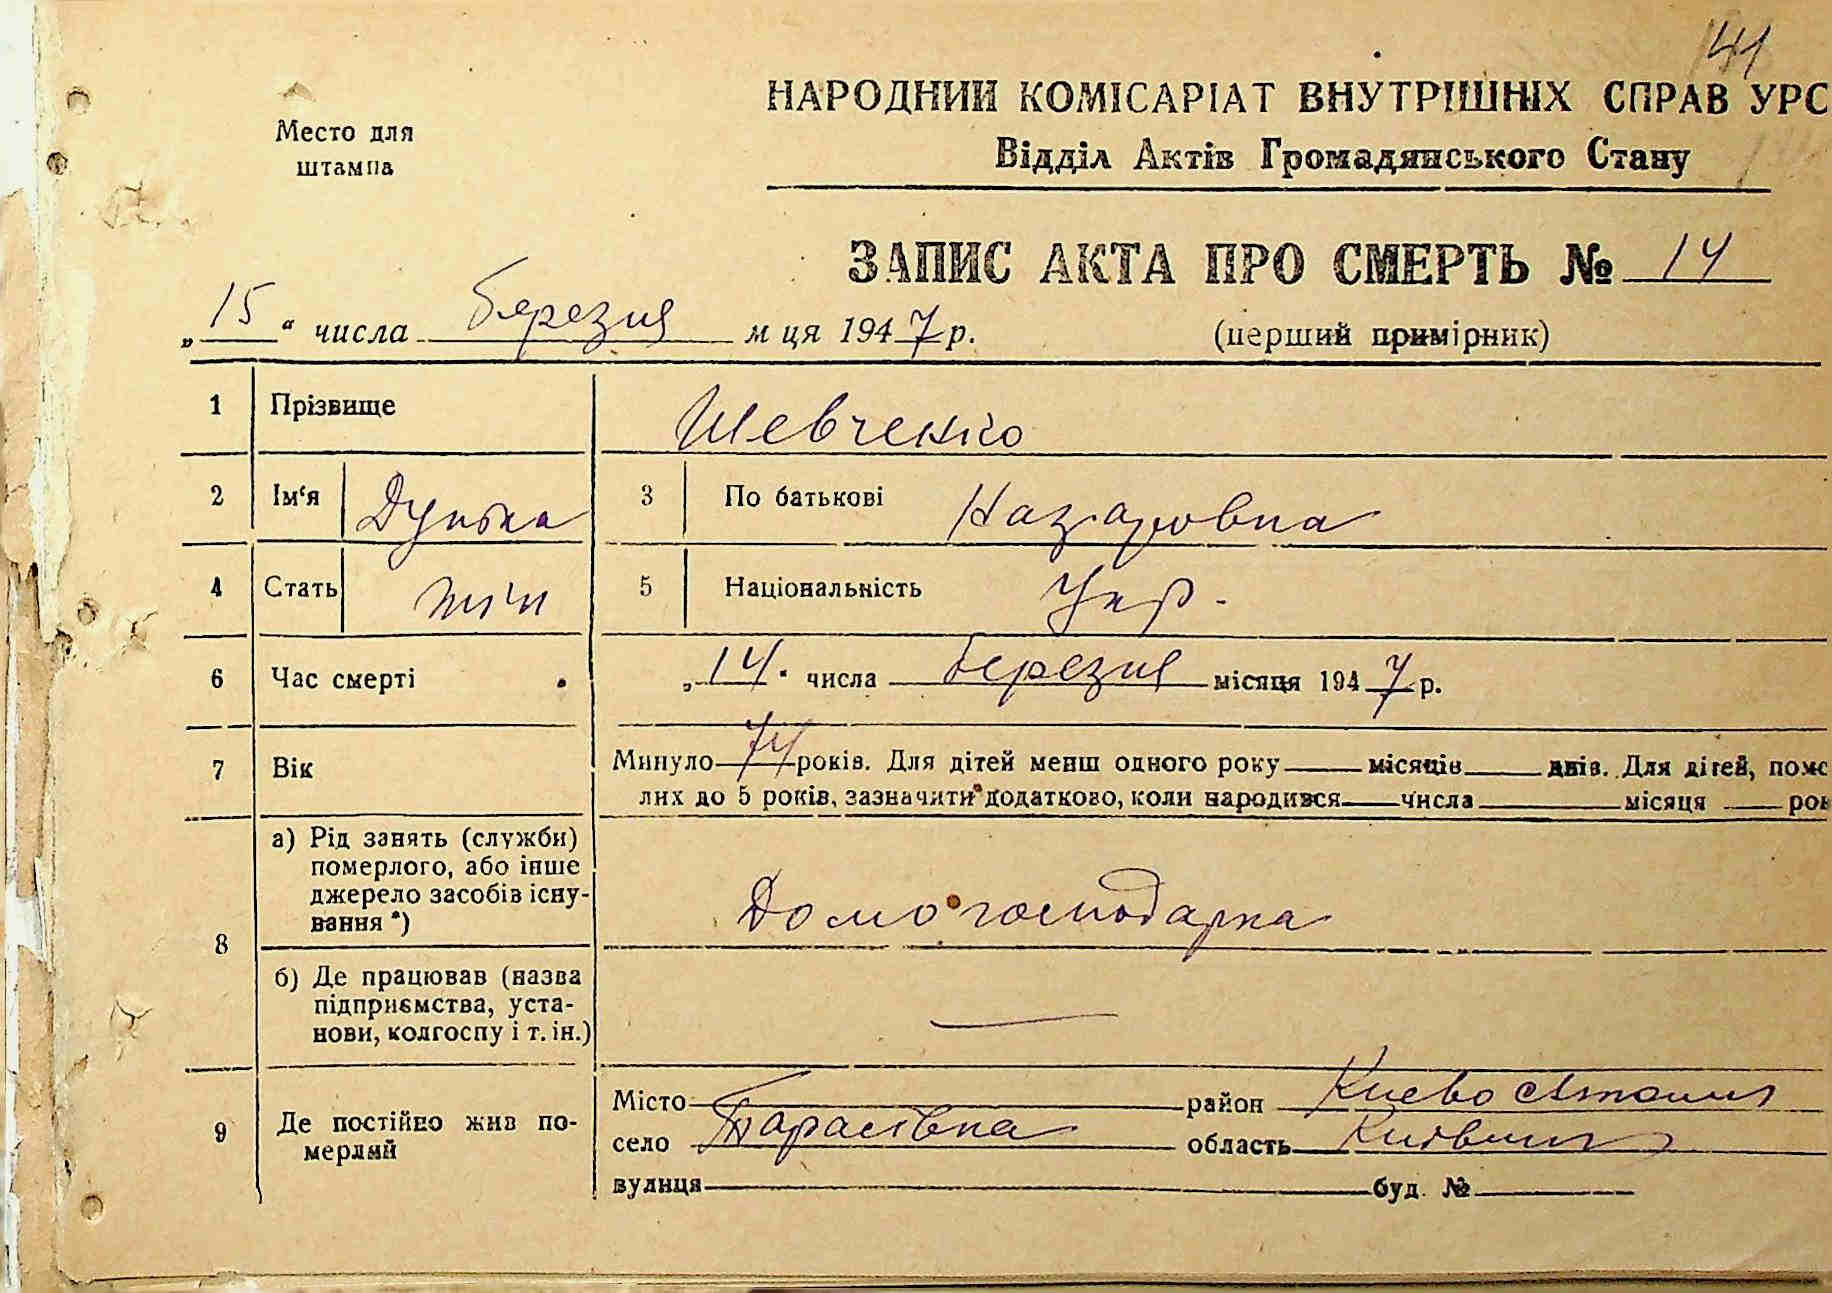 41
НАРОДНИЙ КОМІСАРІАТ ВНУТРІШНІХ СПРАВ УРС
Место для
штампа
Відділ Актів Громадянського Стану
ЗАПИС АКТА ПРО СМЕРТЬ № 14
„15“ числа березня м ця 1947 р.
(перший примірник)
1 Прізвище Шевченко
2 Ім‘я Дунька 3 По батькові Назаровна
4 Стать жін 5 Національність Укр.
6 Час смерті „14. числа березня місяця 1947 р.
7 Вік Минуло 74 років. Для дітей менш одного року місяців днів. Для дітей, помс
лих до 5 років, зазначити додатково, коли народився числа місяця рок
8 а) Рід занять (служби)
померлого, або інше
джерело засобів існу-
вання *)
Домогосподарка
б) Де працював (назва
підприємства, уста-
нови, колгоспу і т. ін.)
—
9 Де постійно жив по-
мерлий
Місто район Киево Святошин
село Тарасівка область Київський
вулиця буд. №